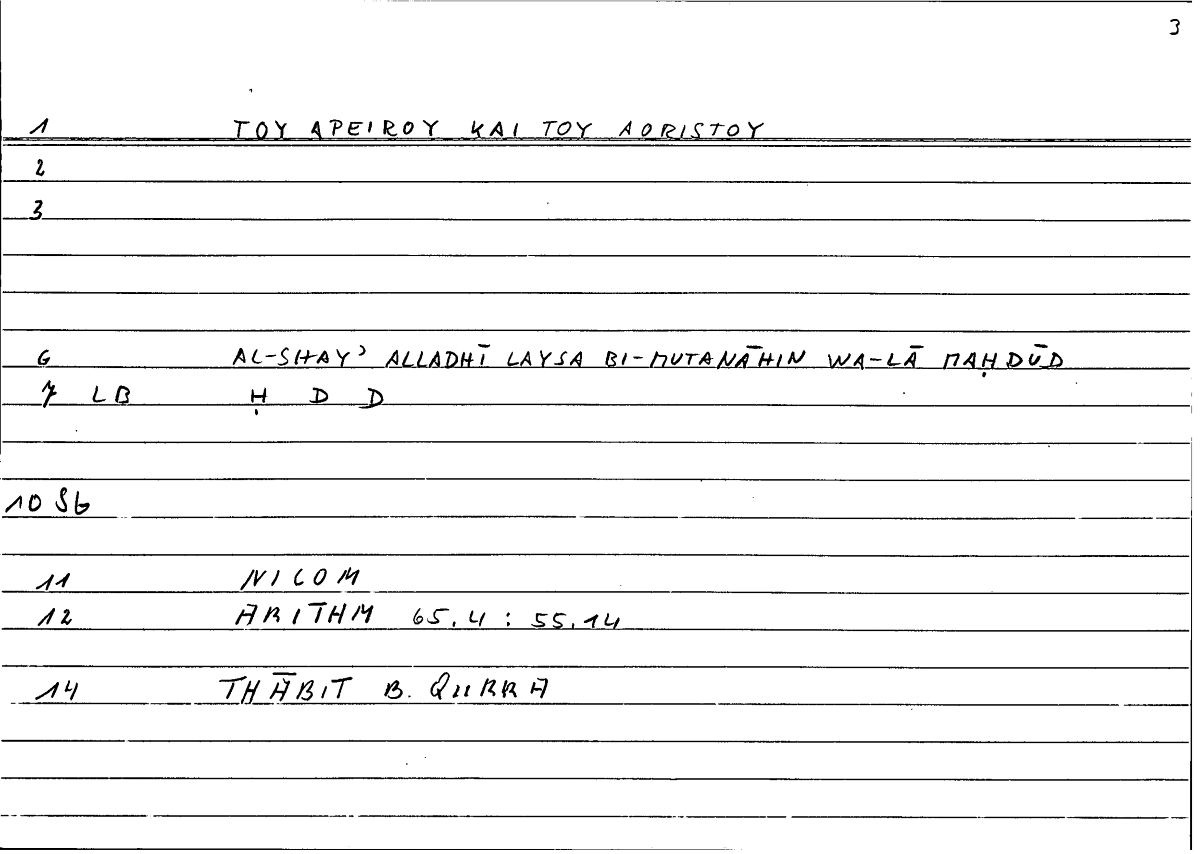 3
1 TOY APEIROY KAI TOY AORISTOY
2
3
6 AL-SHAYʾ ALLADHĪ LAYSA BI-MUTANĀHIN WA-LĀ MAḤDŪD
7 LB Ḥ D D
10 Sb
11 NICOM
12 ARITHM 65.4 : 55.14
14 THĀBIT B. QURRA